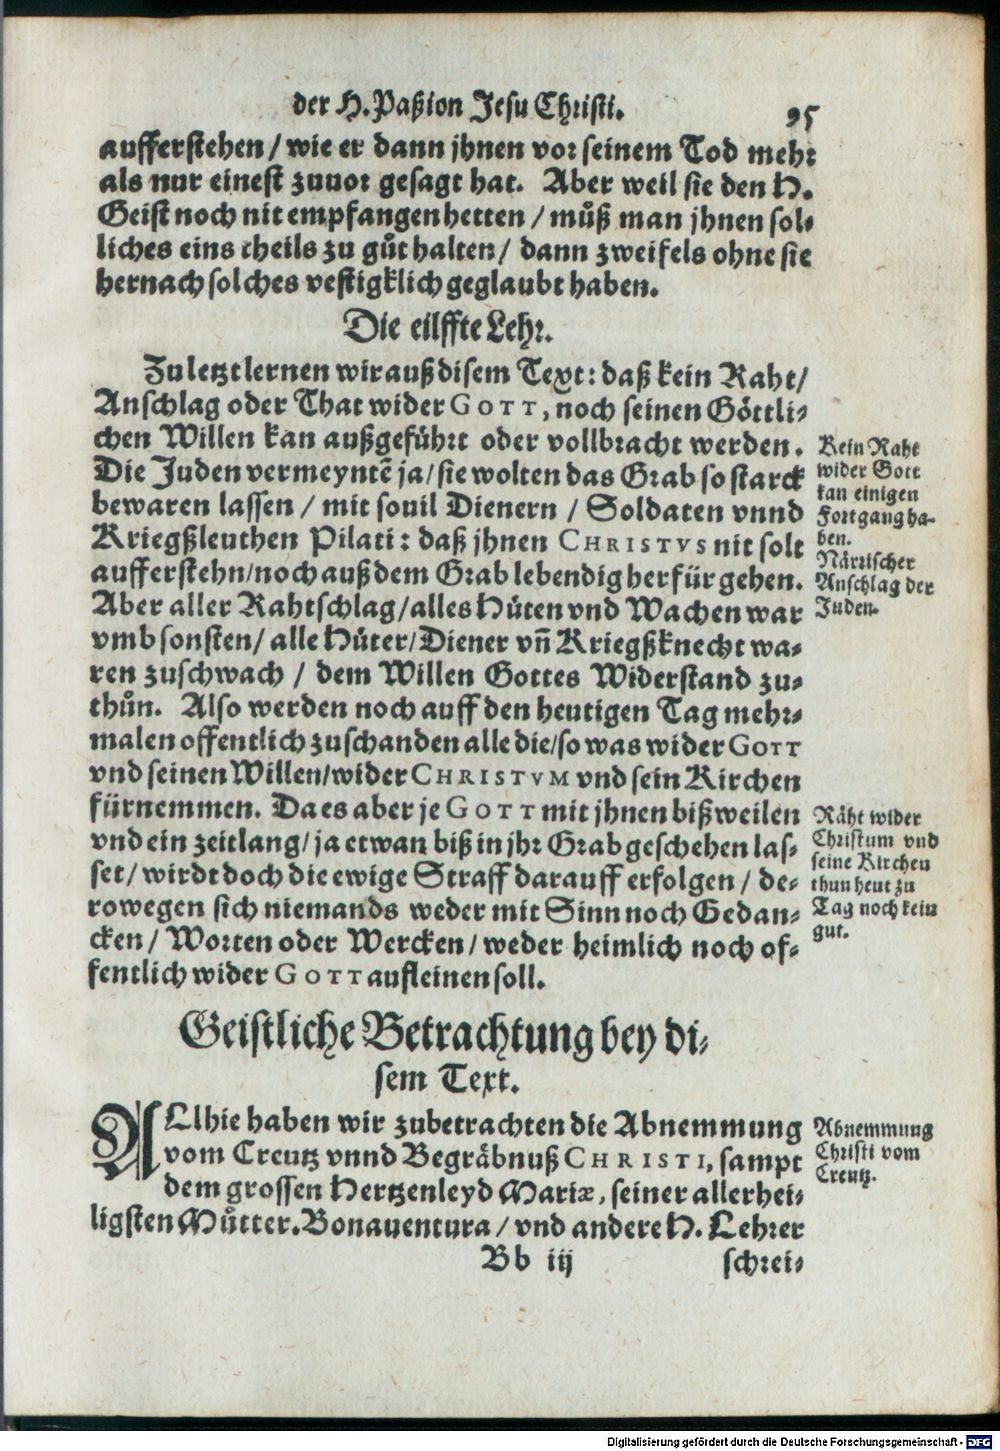 der H. Paßion Jesu Christi.
95
aufferstehen / wie er dann jhnen vor seinem Tod mehr
als nur einest zuuor gesagt hat. Aber weil sie den H.
Geist noch nit empfangen hetten / můß man jhnen sol-
liches eins theils zu gůt halten / dann zweifels ohne sie
hernach solches vestigklich geglaubt haben.
Die eilffte Lehr.
Zu letzt lernen wir auß disem Text: daß kein Raht /
Anschlag oder That wider GOTT, noch seinen Göttli-
chen Willen kan außgeführt oder vollbracht werden.
Die Juden vermeyntẽ ja / sie wolten das Grab so starck
bewaren lassen / mit souil Dienern / Soldaten vnnd
Kriegßleuthen Pilati: daß jhnen CHRISTVS nit solt
aufferstehn / noch auß dem Grab lebendig herfür gehen.
Aber aller Rahtschlag / alles Hüten vnd Wachen war
vmb sonsten / alle Hüter / Diener vñ Kriegßknecht wa-
ren zuschwach / dem Willen Gottes Widerstand zu-
thůn. Also werden noch auff den heutigen Tag mehr-
malen offentlich zuschanden alle die / so was wider GOTT
vnd seinen Willen / wider CHRISTVM vnd sein Kirchen
fürnemmen. Da es aber je GOTT mit jhnen bißweilen
vnd ein zeitlang / ja etwan biß in jhr Grab geschehen las-
set / wirdt doch die ewige Straff darauff erfolgen / de-
rowegen sich niemands weder mit Sinn noch Gedan-
cken / Worten oder Wercken / weder heimlich noch of-
fentlich wider GOTT aufleinen soll.
Kein Raht
wider Gott
kan einigen
Fortgang ha-
ben.
Närrischer
Anschlag der
Juden.
Räht wider
Christum vnd
seine Kirchen
thun heut zu
Tag noch kein
gut.
Geistliche Betrachtung bey di-
sem Text.
ALlhie haben wir zubetrachten die Abnemmung
vom Creutz vnnd Begräbnuß CHRISTI, sampt
dem grossen Hertzenleyd Mariæ, seiner allerhei-
ligsten Můtter. Bonauentura / vnd andere H. Lehrer
Abnemmung
Christi vom
Creutz.
Bb iij
schrei-
Digitalisierung gefördert durch die Deutsche Forschungsgemeinschaft - DFG